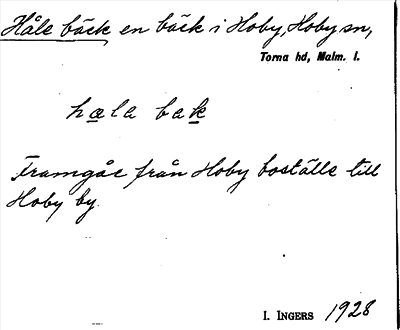 Håle bäck en bäck i Hoby, Hoby sn,
Torna hd, Malm. l.
hæla bæk
Framgår från Hoby boställe till
Hoby by.
I. INGERS 1928